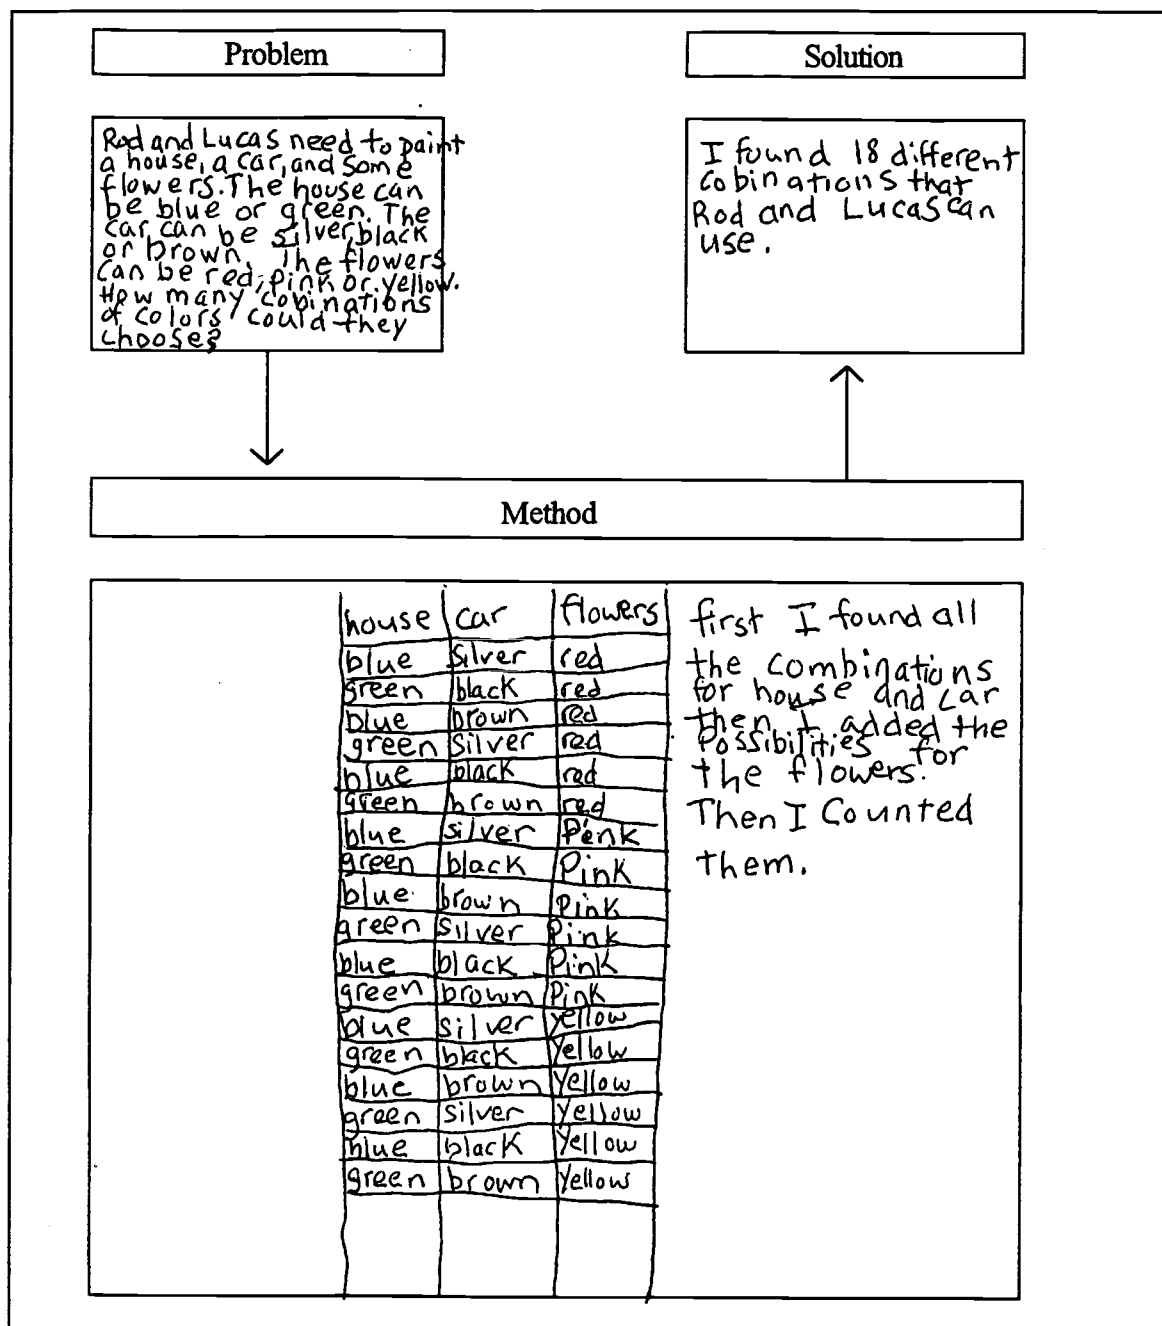 Problem
Rod and Lucas need to paint
a house, a car, and some
flowers. The house can
be blue or green. The
car can be silver, black
or brown. The flowers
can be red, pink or yellow.
How many cobinations
of colors could they
choose?
Solution
I found 18 different
cobinations that
Rod and Lucas can
use.
Method
house car flowers
blue silver red
green black red
blue brown red
green silver red
blue black red
green brown red
blue silver Pink
green black Pink
blue brown Pink
green silver Pink
blue black Pink
green brown Pink
blue silver yellow
green black Yellow
blue brown Yellow
green silver Yellow
blue black Yellow
green brown Yellow
first I found all
the combinations
for house and car
then I added the
possibilities for
the flowers.
Then I Counted
them.